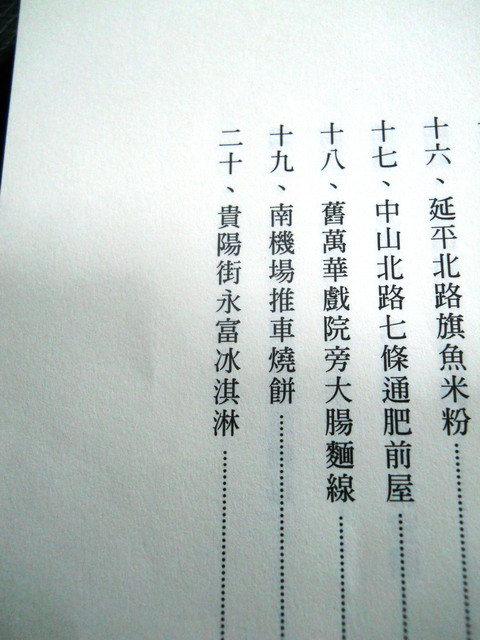 十六、延平北路旗魚米粉
十七、中山北路七條通肥前屋
十八、舊萬華戲院旁大腸麵線
十九、南機場推車燒餅
二十、貴陽街永富冰淇淋